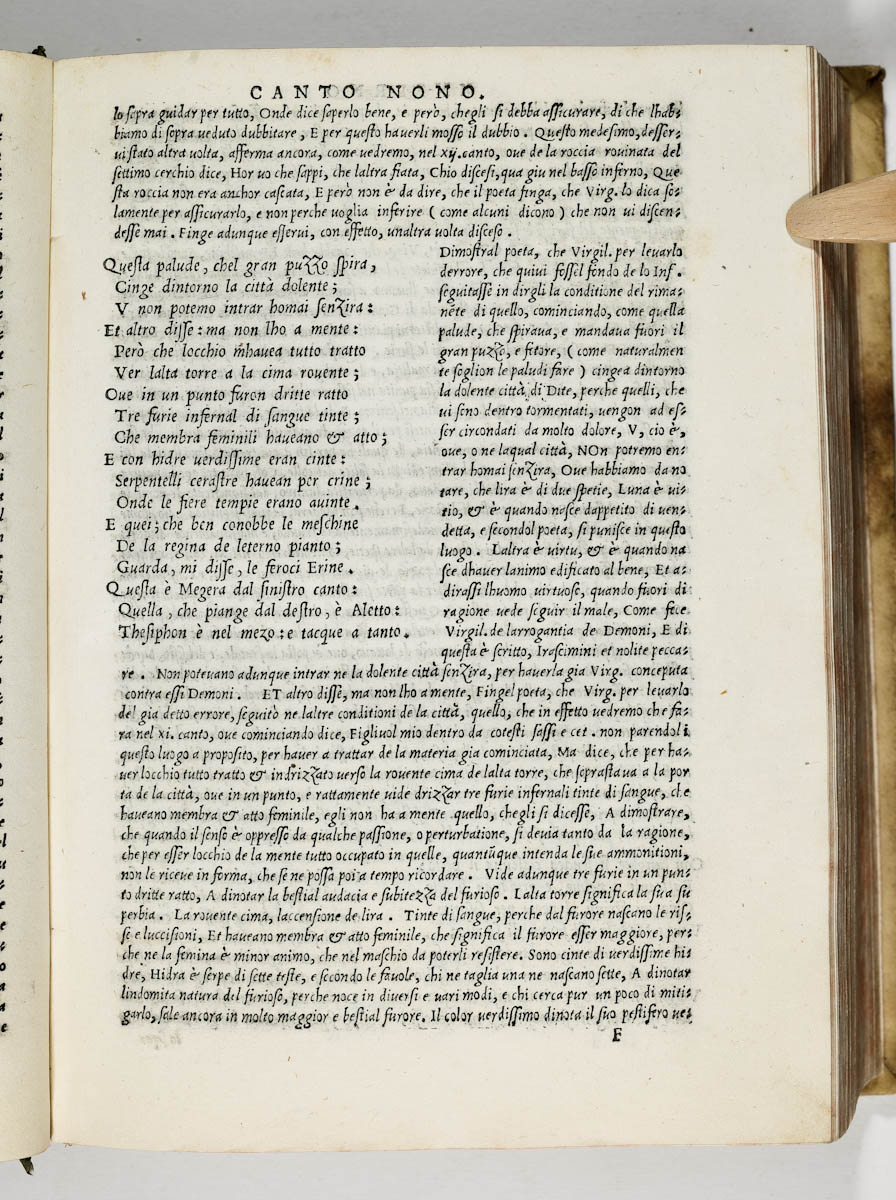 CANTO NONO.
lo sopra guidar per tutto, Onde dice saperlo bene, e però, chegli si debba assicurare, di che lhab-
biamo di sopra veduto dubbitare, E per questo hauerli mosso il dubbio. Questo medesimo, desser-
ui stato altra uolta, afferma ancora, come uedremo, nel xij. canto, oue de la roccia rouinata del
settimo cerchio dice, Hor uo che sappi, che laltra fiata, Chio discesi, qua giu nel basso inferno, Que
sta roccia non era anchor cascata, E però non è da dire, che il poeta finga, che Virg. lo dica so-
lamente per assicurarlo, e non perche uoglia inferire (come alcuni dicono) che non ui discen-
desse mai. Finge adunque esserui, con effetto, unaltra uolta disceso.
Questa palude, chel gran puzzo spira,
Cinge dintorno la città dolente;
V non potemo intrar homai senzira:
Et altro disse: ma non lho a mente:
Però che locchio m̃hauea tutto tratto
Ver lalta torre a la cima rouente;
Oue in un punto furon dritte ratto
Tre furie infernal di sangue tinte;
Che membra feminili haueano & atto;
E con hidre uerdissime eran cinte:
Serpentelli cerastre hauean per crine;
Onde le fiere tempie erano auinte.
E quei; che ben conobbe le meschine
De la regina de leterno pianto;
Guarda, mi disse, le feroci Erine.
Questa è Megera dal sinistro canto:
Quella, che piange dal destro, è Aletto:
Thesiphon è nel mezo: e tacque a tanto.
Dimostral poeta, che Virgil. per leuarlo
derrore, che quiui fossel fondo de lo Inf.
seguitasse in dirgli la conditione del rima-
nẽte di quello, cominciando, come quella
palude, che spiraua, e mandaua fuori il
gran puzzo, e fetore, (come naturalmen
te soglion le paludi fare) cingea dintorno
la dolente città di Dite, perche quelli, che
ui sono dentro tormentati, uengon ad es-
ser circondati da molto dolore, V, cio è,
oue, o ne laqual città, NOn potremo en-
trar homai senzira, Oue habbiamo da no
tare, che lira è di due spetie, Luna è ui-
tio, & è quando nasce dappetito di uen-
detta, e secondol poeta, si punisce in questo
luogo. Laltra è uirtu, & è quando na
sce dhauer lanimo edificato al bene, Et a-
dirassi lhuomo uirtuoso, quando fuori di
ragione uede seguir il male, Come fece
Virgil. de larrogantia de Demoni, E di
questa è scritto, Irascimini et nolite pecca-
re. Non poteuano adunque intrar ne la dolente città senzira, per hauerla gia Virg. conceputa
contra essi Demoni. ET altro disse, ma non lho a mente, Fingel poeta, che Virg. per leuarlo
del gia detto errore, seguitò ne laltre conditioni de la città, quello, che in effetto uedremo che fa-
ra nel xi. canto, oue cominciando dice, Figliuol mio dentro da cotesti sassi e cet. non parendoli
questo luogo a proposito, per hauer a trattar de la materia gia cominciata, Ma dice, che per ha-
uer locchio tutto tratto & indrizzato uerso la rouente cima de lalta torre, che soprastaua a la por
ta de la città, oue in un punto, e rattamente uide drizzar tre furie infernali tinte di sangue, che
haueano membra & atto feminile, egli non ha a mente quello, chegli si dicesse, A dimostrare,
che quando il senso è oppresso da qualche passione, o perturbatione, si deuia tanto da la ragione,
che per esser locchio de la mente tutto occupato in quelle, quantũque intenda le sue ammonitioni,
non le riceue in forma, che se ne possa poi a tempo ricordare. Vide adunque tre furie in un pun-
to dritte ratto, A dinotar la bestial audacia e subitezza del furioso. Lalta torre significa la sua su
perbia. La rouente cima, laccensione de lira. Tinte di sangue, perche dal furore nascano le ris-
se e luccisioni, Et haueano membra & atto feminile, che significa il furore esser maggiore, per-
che ne la femina è minor animo, che nel maschio da poterli resistere. Sono cinte di uerdissime hi-
dre, Hidra è serpe di sette teste, e secondo le fauole, chi ne taglia una ne nascano sette, A dinotar
lindomita natura del furioso, perche noce in diuersi e uari modi, e chi cerca pur un poco di miti-
garlo, sale ancora in molto maggior e bestial furore. Il color uerdissimo dinota il suo pestifero ue-
F